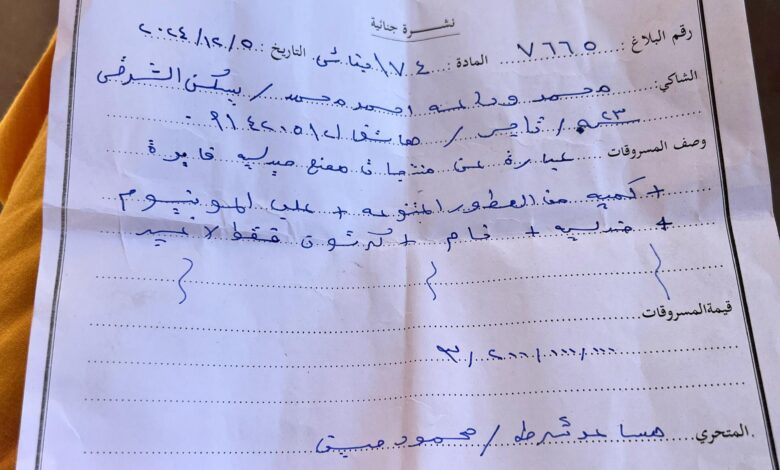 نشرة جنائية
رقم البلاغ : ٧٦٦٥ المادة : ١٧٤ جنائي التاريخ : ٢٠٢٤/١٢/٥
الشاكي: محمد احمد محمد / يسكن الشرقي
٢٣ / تاجر / هاتف ٩١٤٢٠٥١
وصف المسروقات عبارة عن منتجات مصنع صندلية
+ كمية من العطور المتنوعة + علب المونيوم
+ صندلية + خام + كرتون فقط لا غير
قيمة المسروقات
٣/٢٠٠/٠٠٠/٠٠٠
المتحري مساعد شرطه / محمود